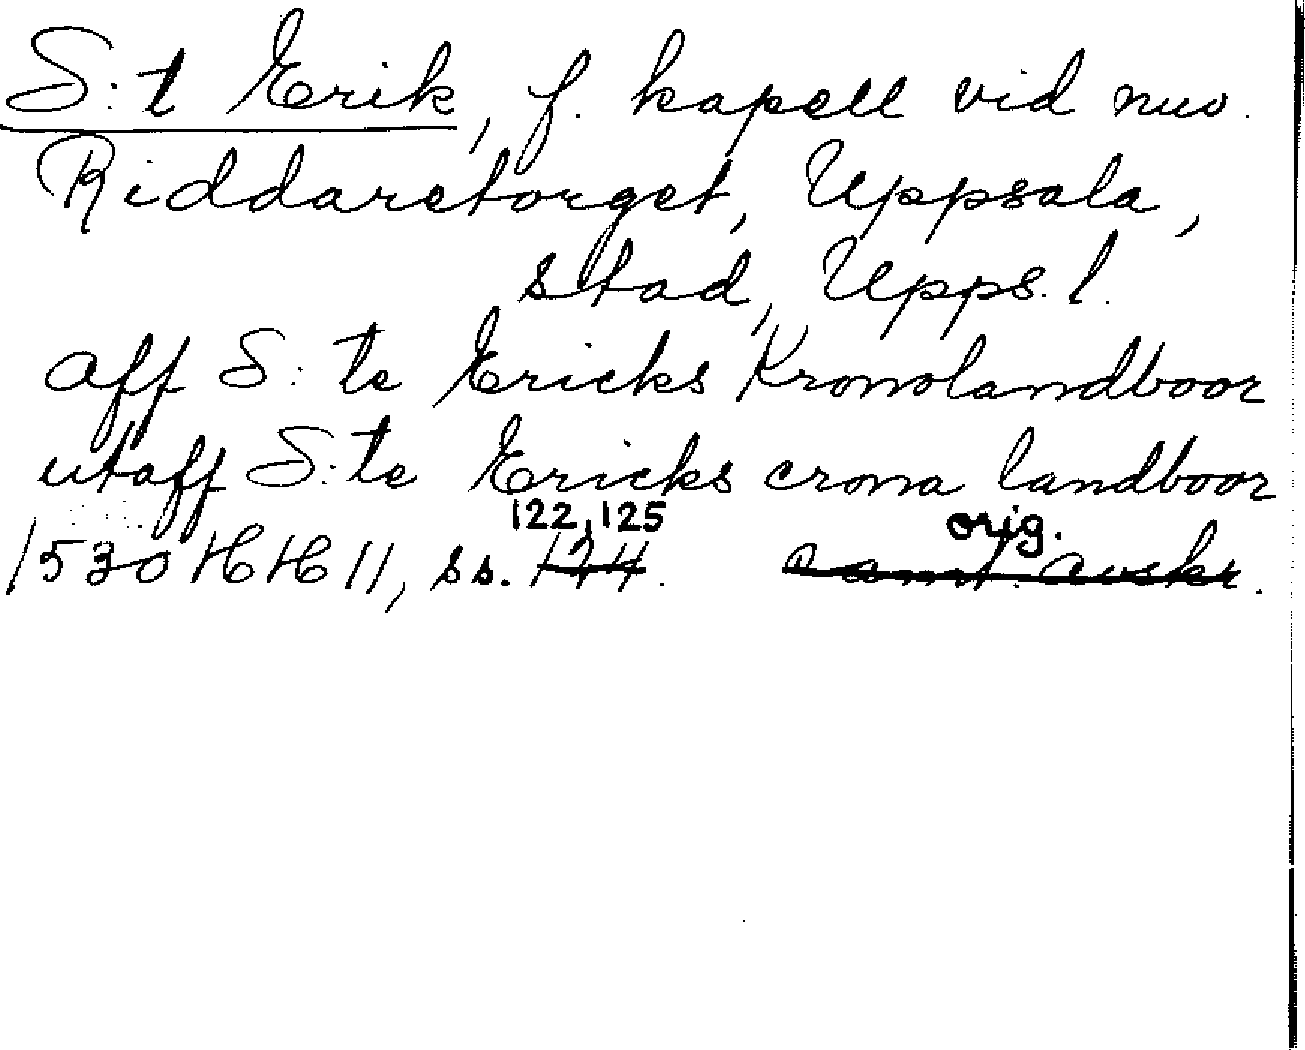 S:t Erik, f. kapell vid nuv.
Riddaretorget, Uppsala,
stad, Upps. l.
aff S:te Ericks Kronolandboor
utaff S:te Ericks crona landboor
122, 125 orig.
1530 HH 11, ss. 124. samt. avskr.